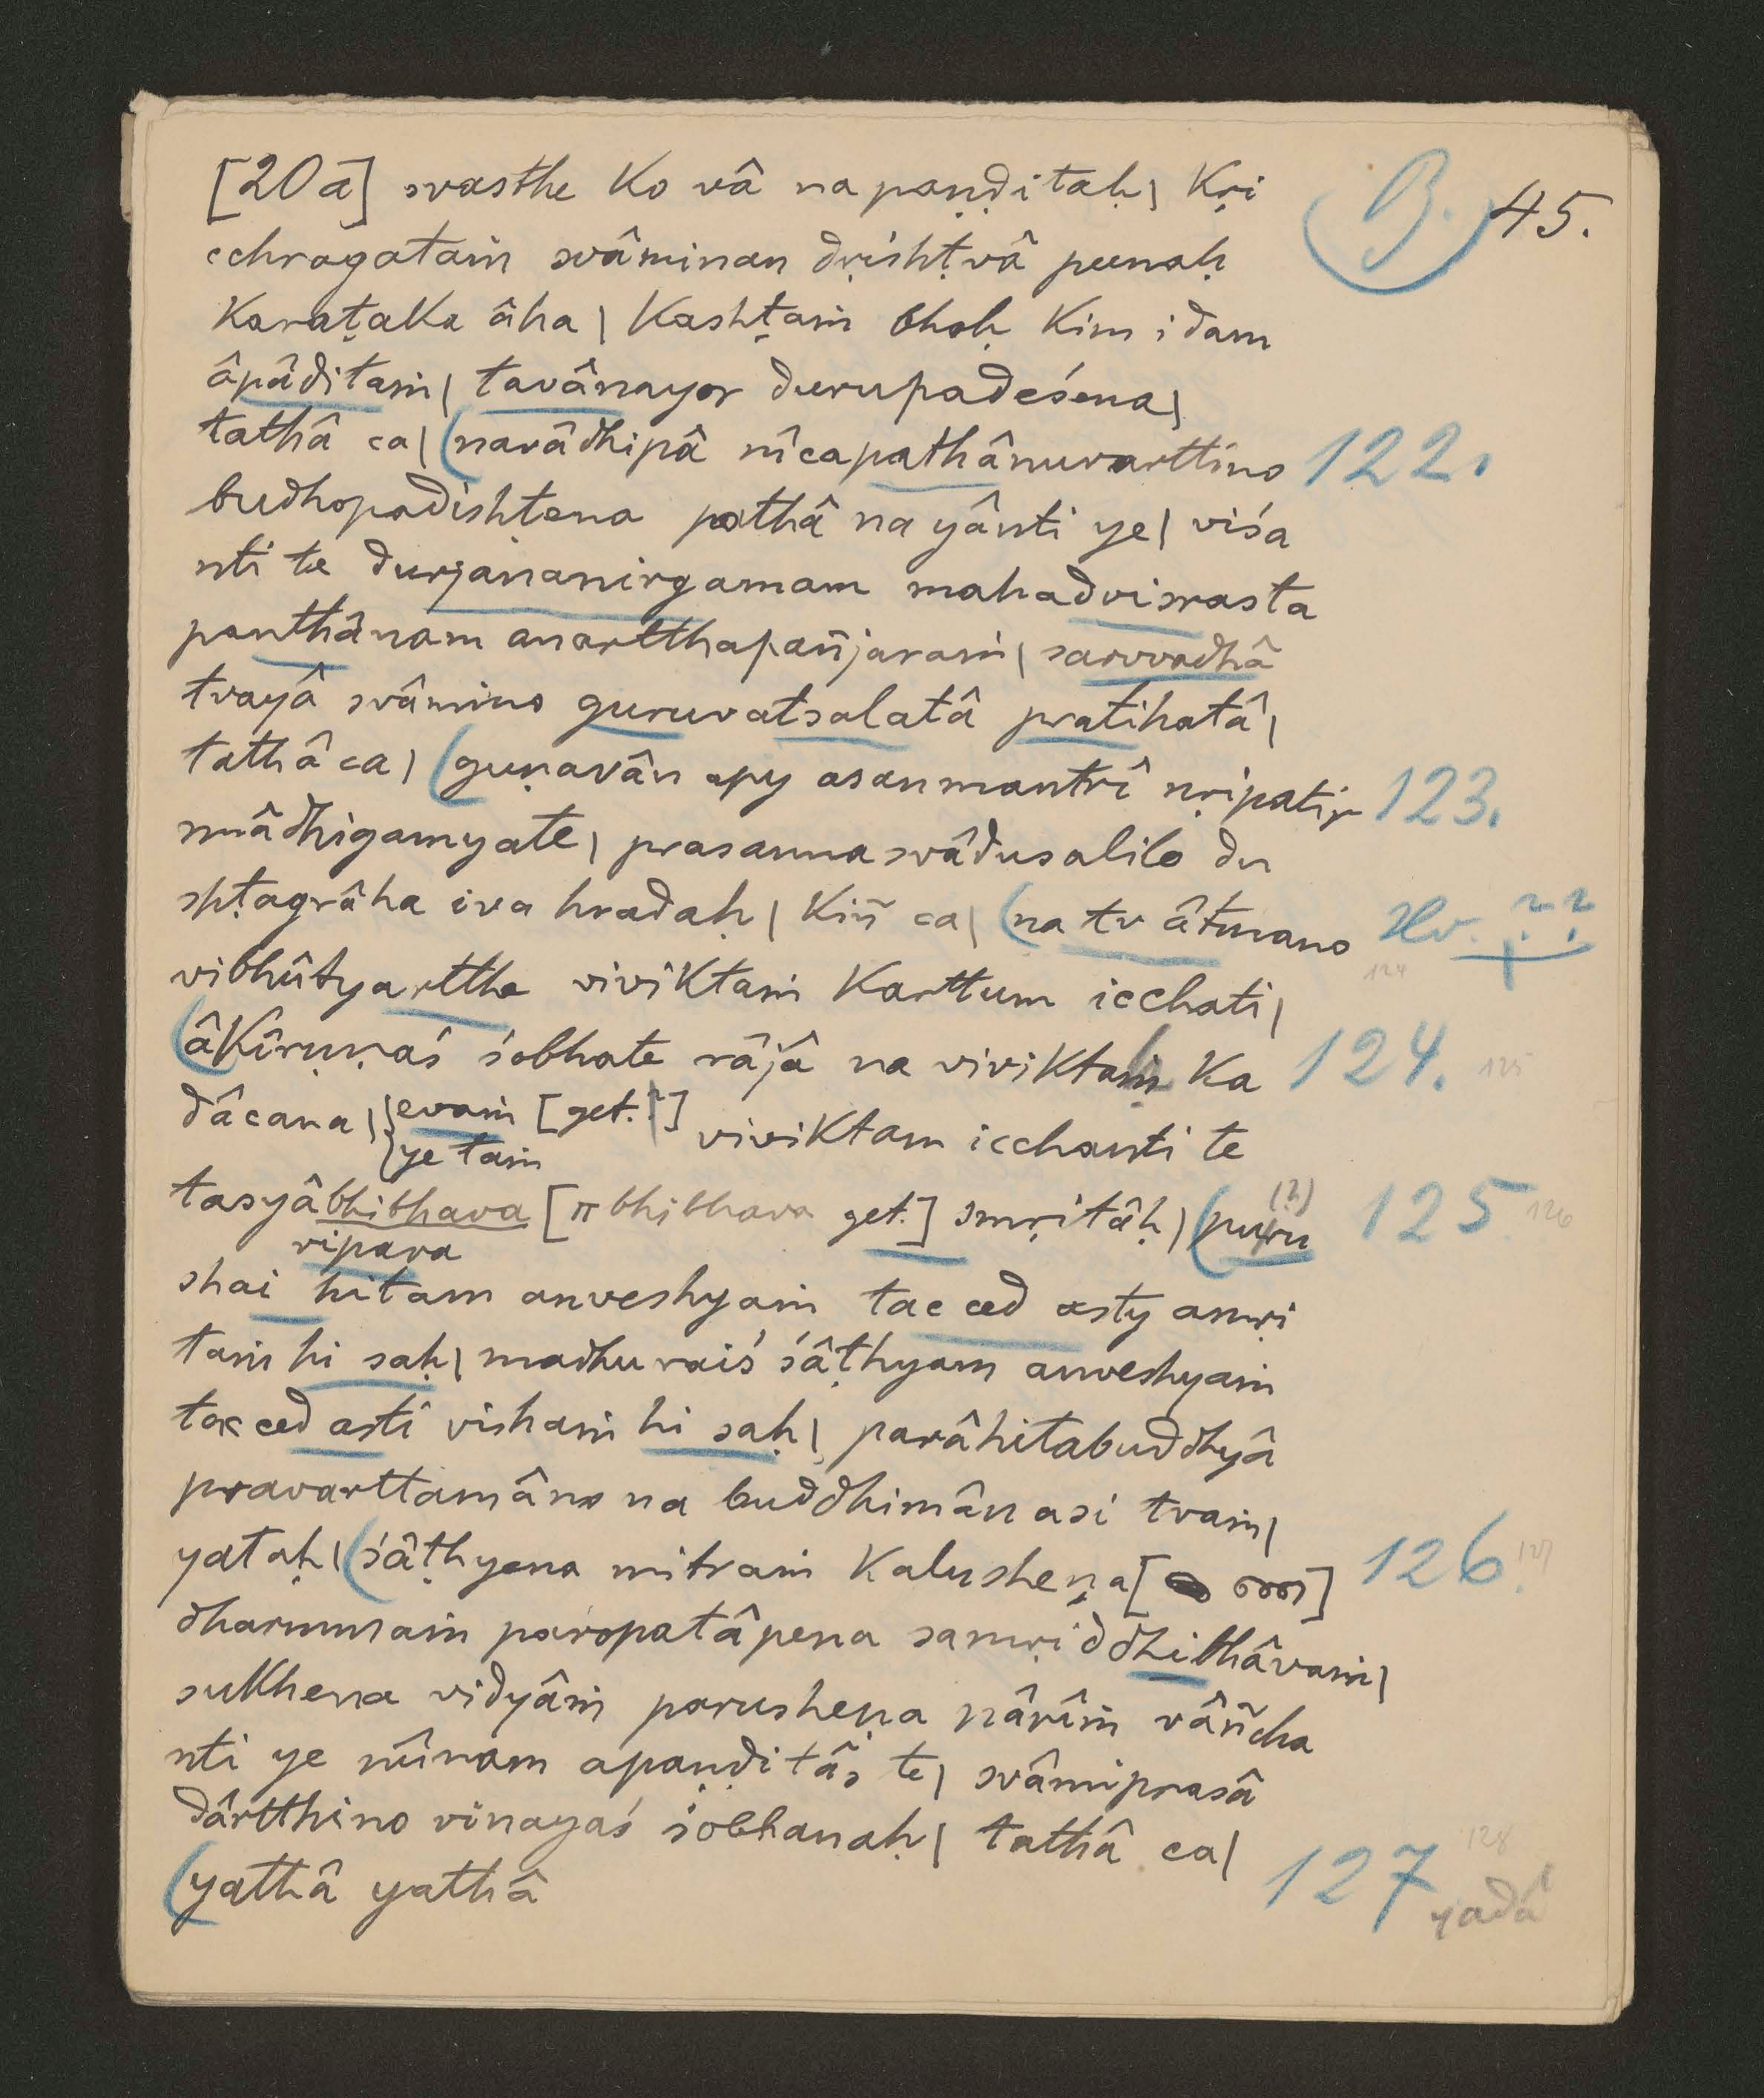 B. 45.
[20a] svasthe ko vâ na paṇḍitaḥ| kṛi
cchragataṁ svâminan dṛishṭvâ punaḥ
Karaṭaka âha| kashṭaṁ bhoḥ kim idam
âpâditaṁ| tavânayor durupadeśena|
tathâ ca| (narâdhipâ nîcapathânuvarttino 122.
budhopadishṭena pathâ na yânti ye| viśa
nti te durjananirgamam mahadvisrasta
panthânam anartthapañjaraṁ| sarvvadhâ
tvayâ svâmino guruvatsalatâ pratihatâ|
tathâ ca| (guṇavân apy asanmantrî nṛipatir 123.
nnâdhigamyate| prasannasvâdusalilo du
shṭagrâha iva hradaḥ| kiñ ca| (na tv âtmano Hv. ??
124
vibhûtyarttha viviktaṁ karttum icchati|
(âkîrṇṇaś śobhate râjâ na viviktaḥ ka 124. 125
dâcana| {evaṁ [get.?] viviktam icchanti te
{ye taṁ
tasyâbhibhava [π bhibhava get.] smṛitâḥ| (puru (?) 125 126
ripava
shai hitam anveshyaṁ tac ced asty amṛi
taṁ hi saḥ| madhuraiś śâṭhyam anveshyaṁ
tac ced asti vishaṁ hi saḥ| parâhitabuddhyâ
pravarttamâno na buddhimân asi tvaṁ|
yataḥ| (śâṭhyena mitraṁ kalusheṇa [ ] 126. 127
dharmmaṁ paropatâpena samṛiddhibhâvaṁ|
sukhena vidyâṁ parusheṇa nârîṁ vâñcha
nti ye nûnam apaṇḍitâs te| svâmiprasâ
dârtthino vinayaś śobhanaḥ| tathâ ca|
(yathâ yathâ 127 128
yadâ